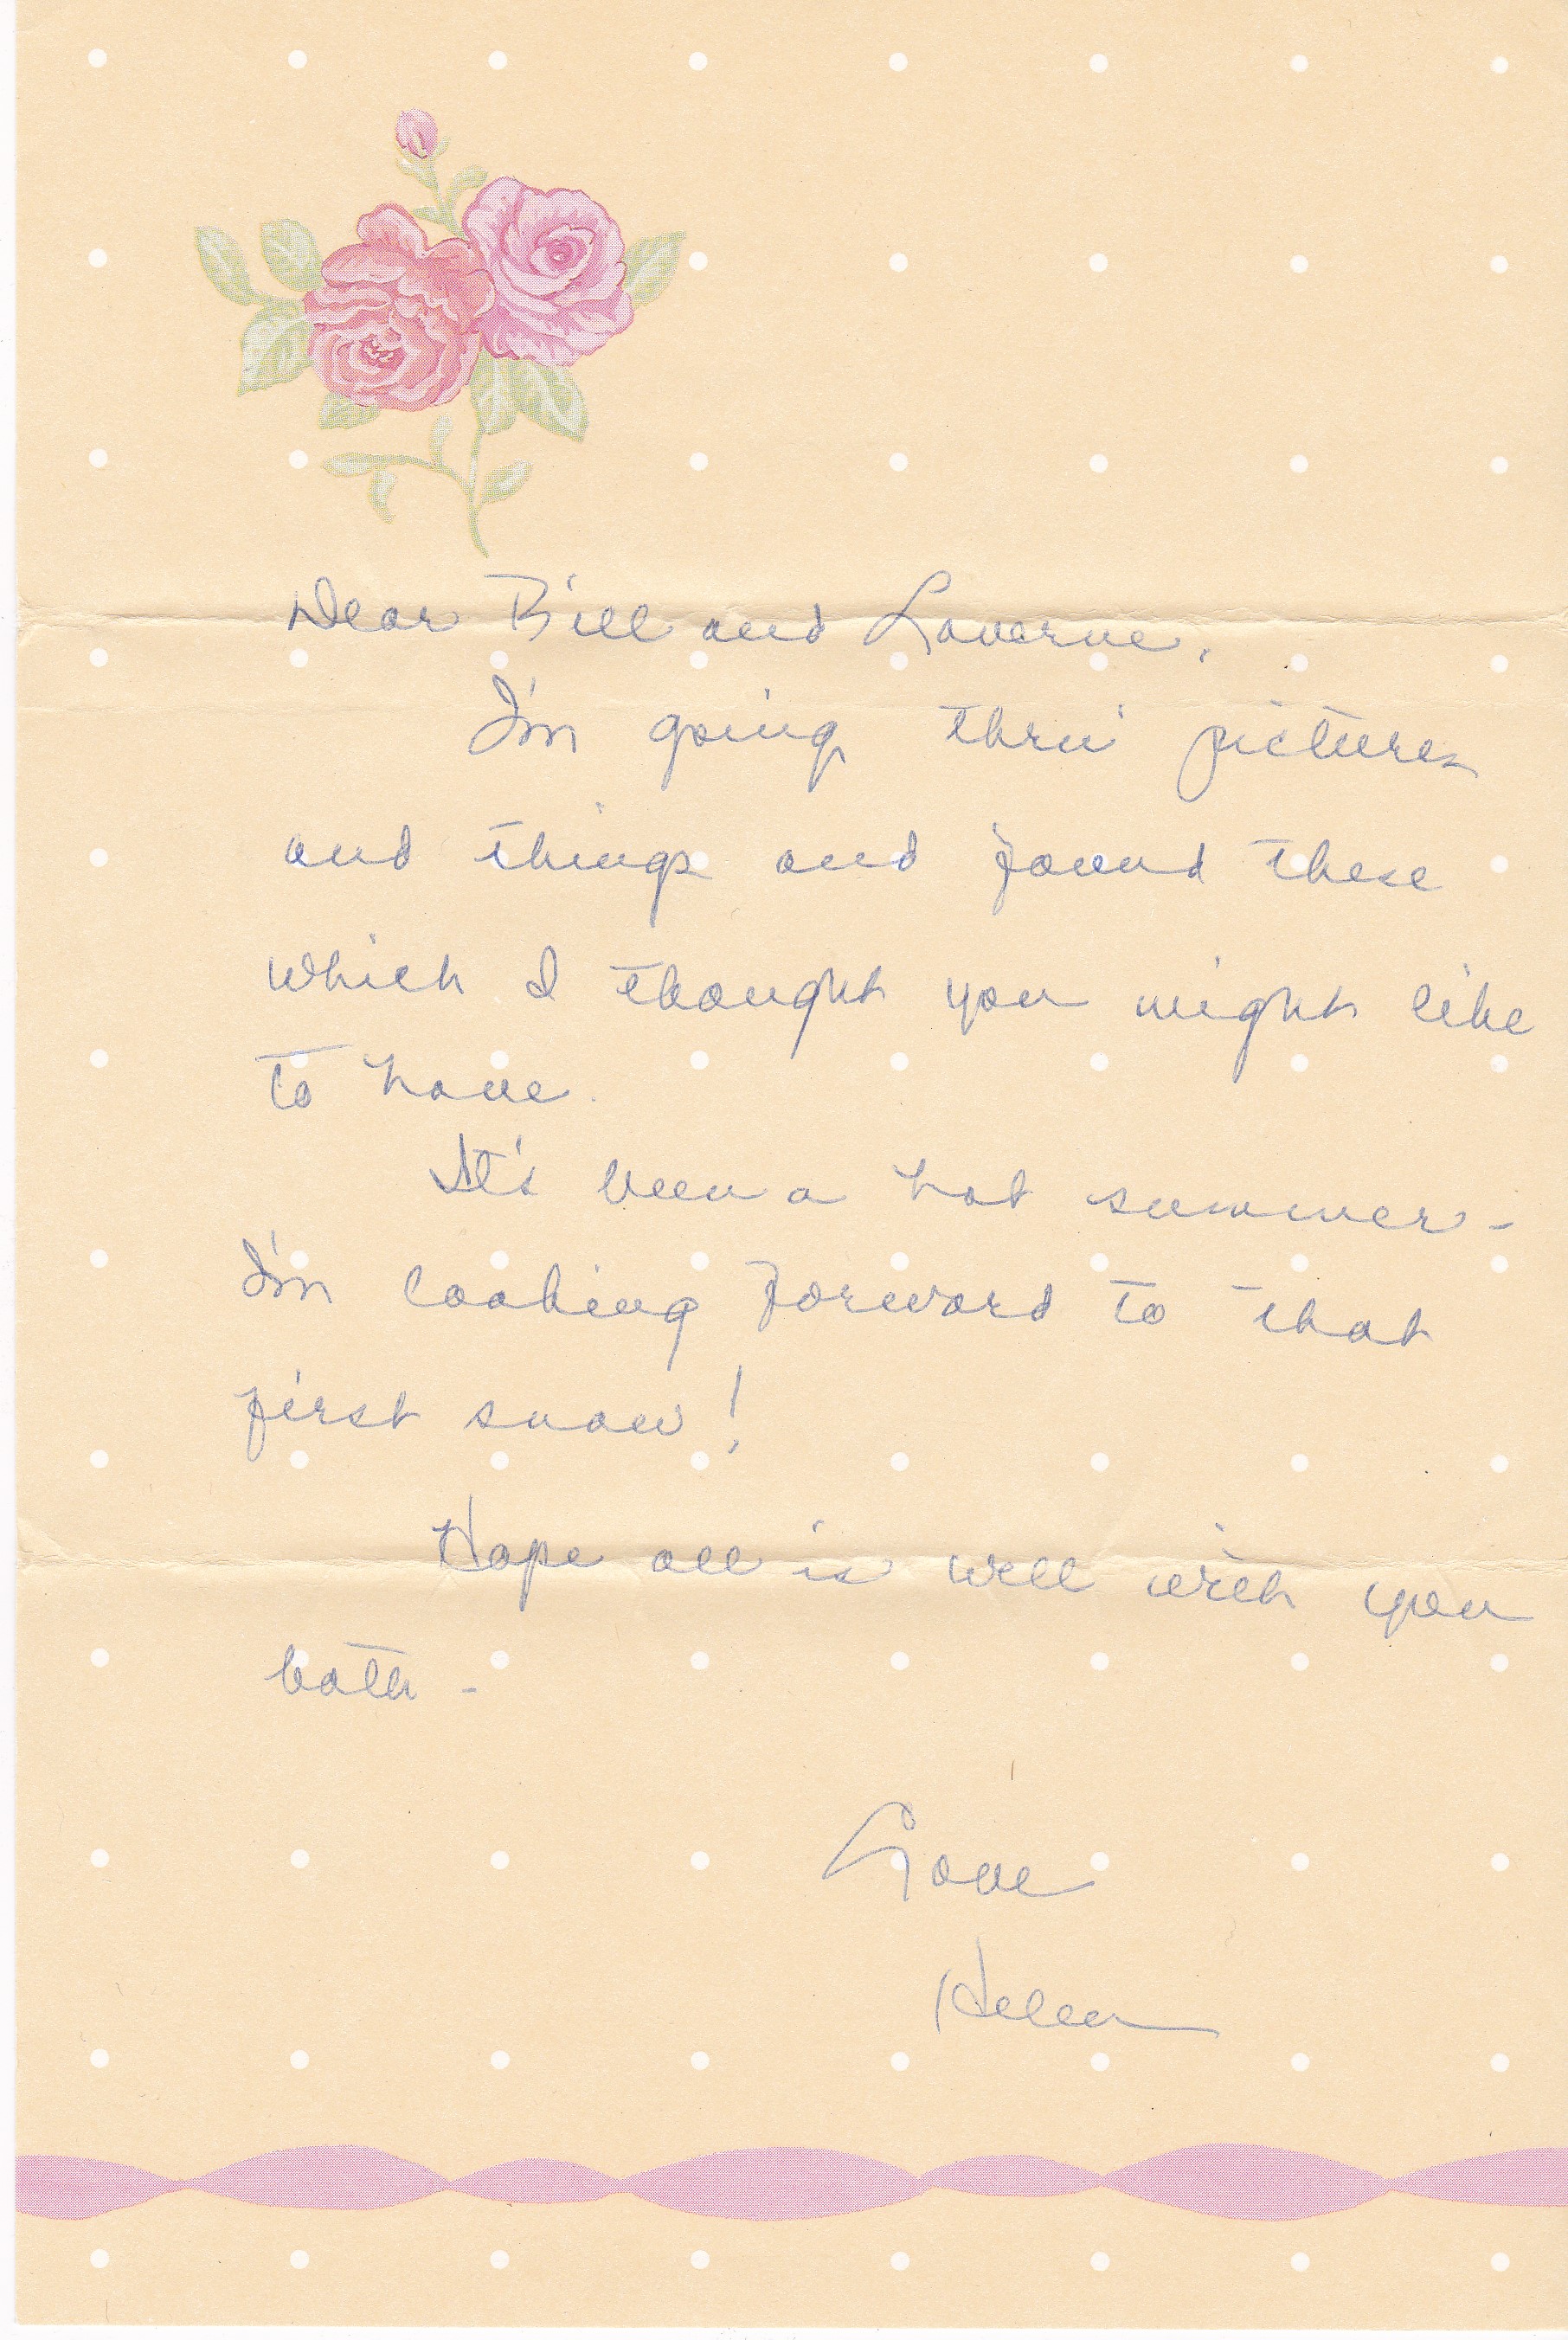 Dear Bill and Laverne,
I'm going thru pictures
and things and found these
which I thought you might like
to have.
It's been a hot summer -
I'm looking forward to that
first snow!
Hope all is well with you
both -
Love
Helen